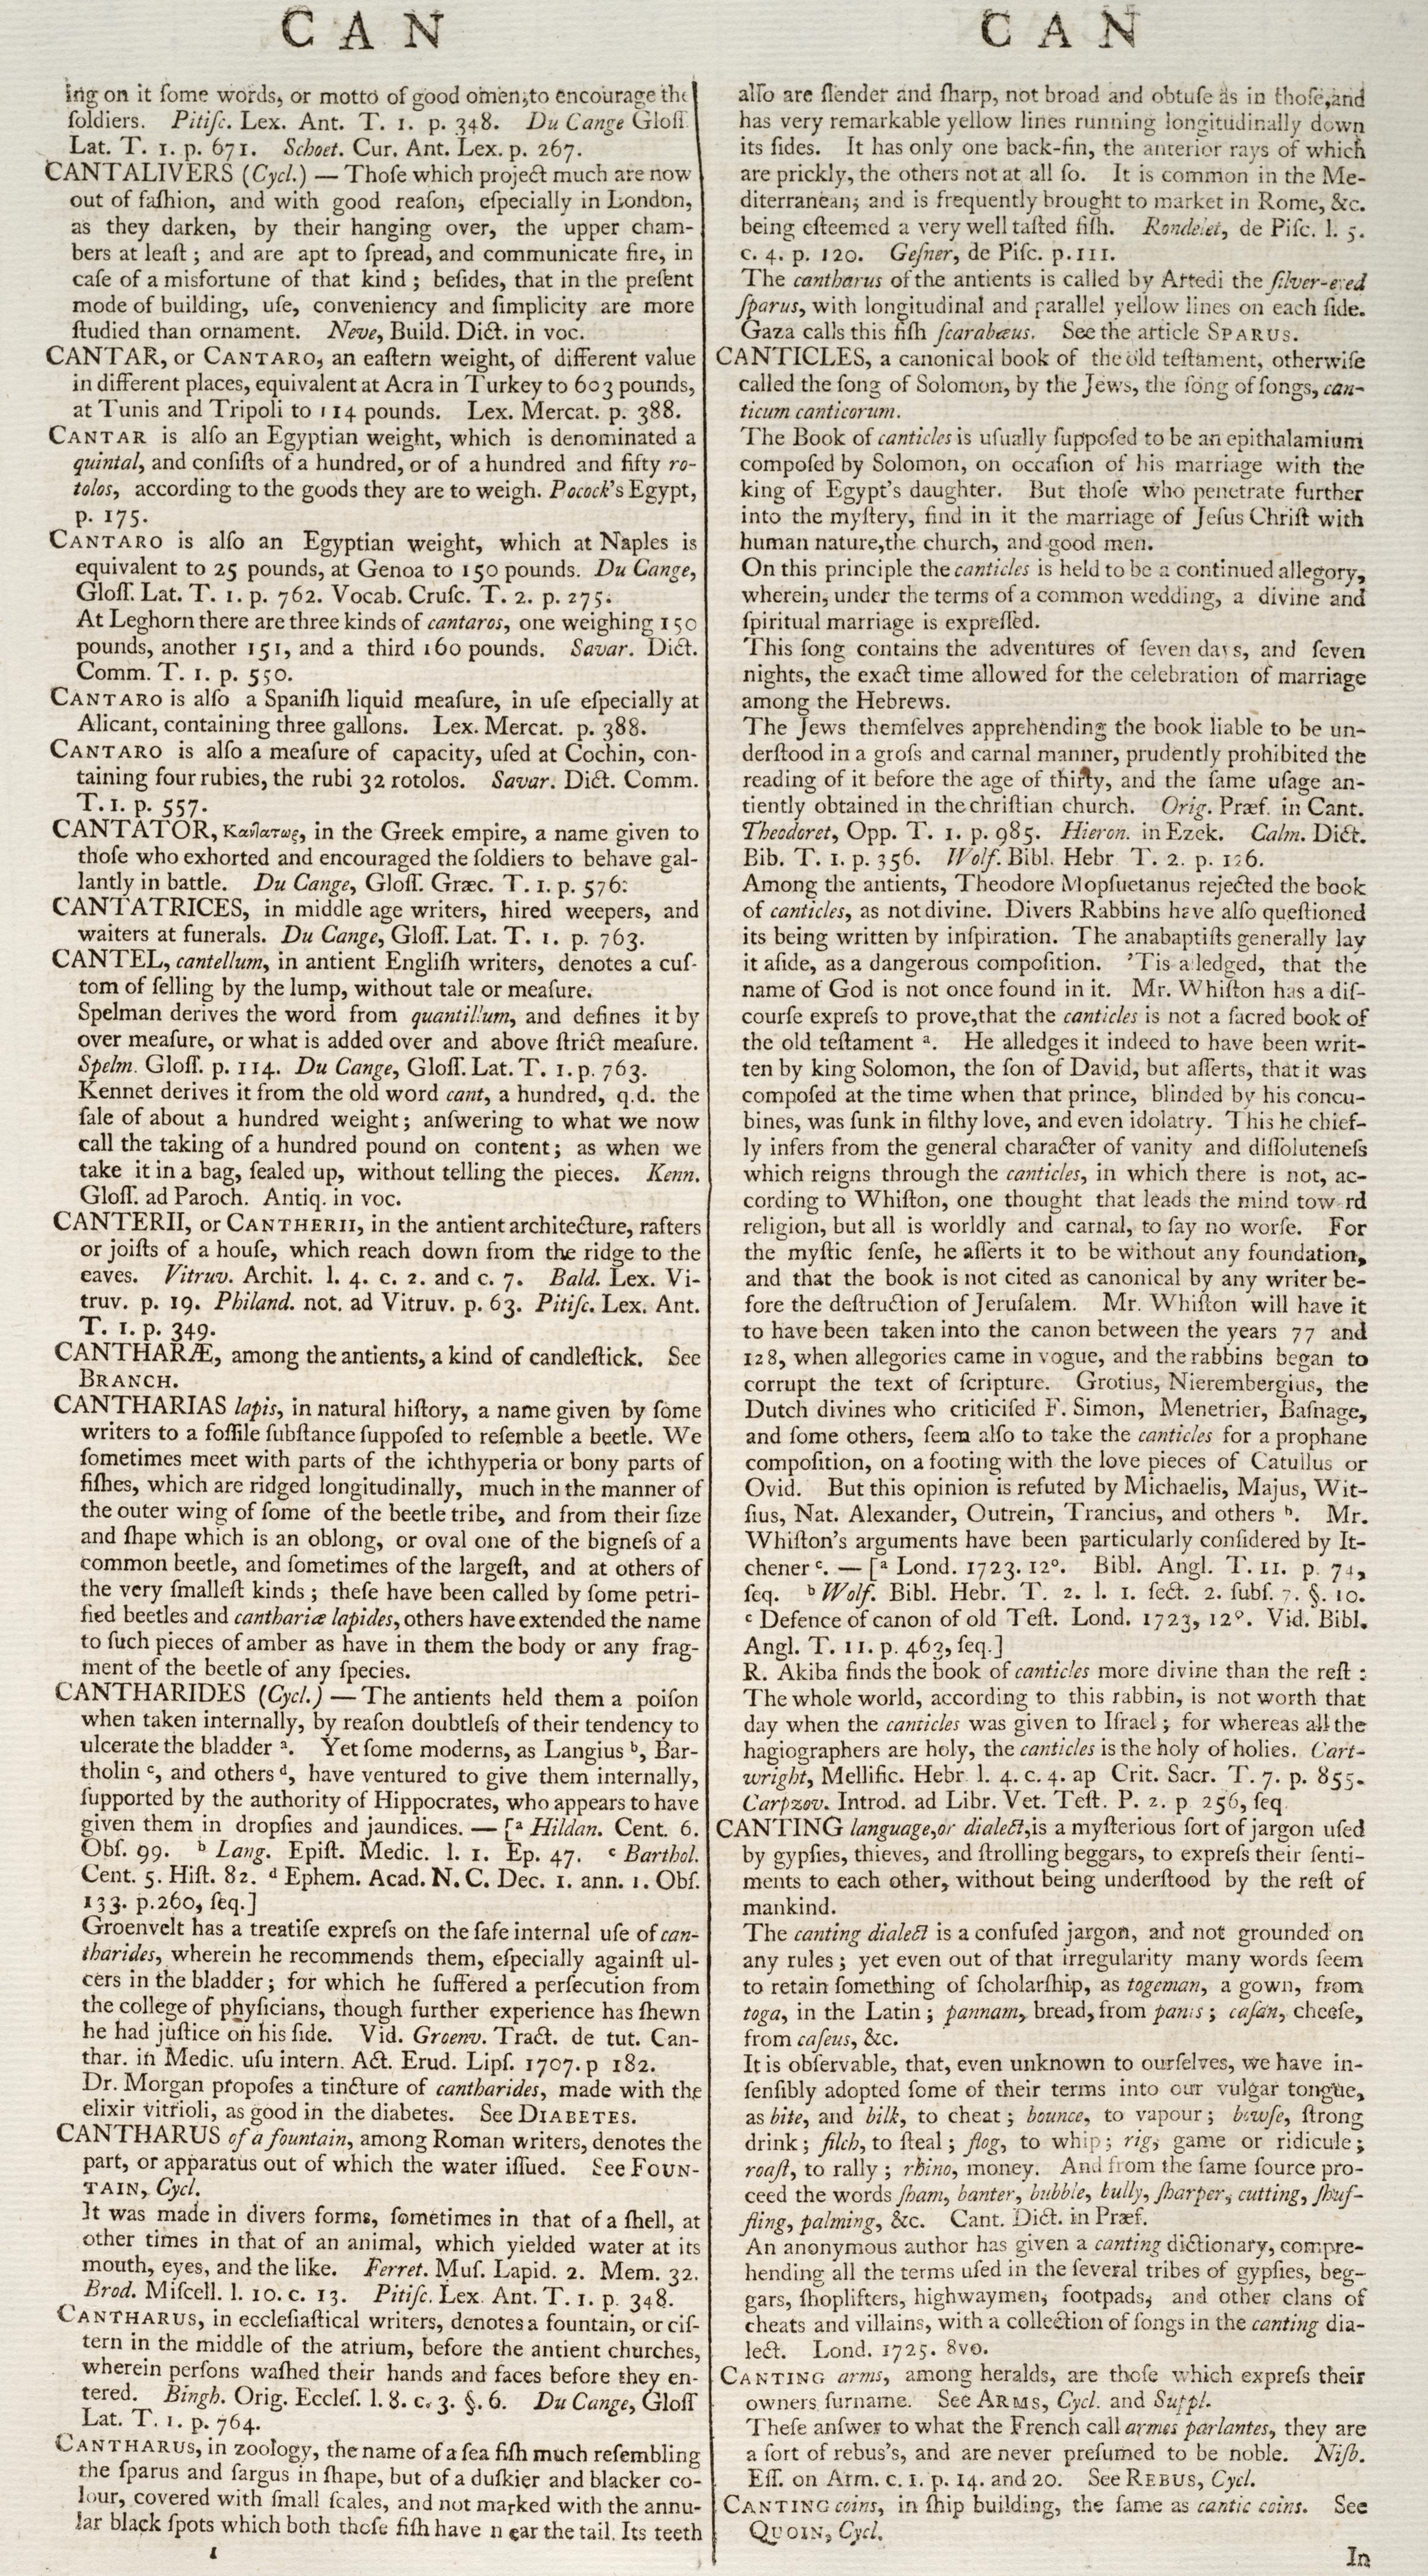 C A N
C A N
ing on it ſome words, or motto of good omen, to encourage the
ſoldiers. Pitiſc. Lex. Ant. T. 1. p. 348. Du Cange Gloſſ.
Lat. T. 1. p. 671. Schoet. Cur. Ant. Lex. p. 267.
CANTALIVERS (Cycl.) — Thoſe which project much are now
out of faſhion, and with good reaſon, eſpecially in London,
as they darken, by their hanging over, the upper cham-
bers at leaſt; and are apt to ſpread, and communicate fire, in
caſe of a misfortune of that kind; beſides, that in the preſent
mode of building, uſe, conveniency and ſimplicity are more
ſtudied than ornament. Neve, Build. Dict. in voc.
CANTAR, or CANTARO, an eaſtern weight, of different value
in different places, equivalent at Acra in Turkey to 603 pounds,
at Tunis and Tripoli to 114 pounds. Lex. Mercat. p. 388.
CANTAR is alſo an Egyptian weight, which is denominated a
quintal, and conſiſts of a hundred, or of a hundred and fifty ro-
tolos, according to the goods they are to weigh. Pocock's Egypt,
p. 175.
CANTARO is alſo an Egyptian weight, which at Naples is
equivalent to 25 pounds, at Genoa to 150 pounds. Du Cange,
Gloſſ. Lat. T. 1. p. 762. Vocab. Cruſc. T. 2. p. 275.
At Leghorn there are three kinds of cantaros, one weighing 150
pounds, another 151, and a third 160 pounds. Savar. Dict.
Comm. T. 1. p. 550.
CANTARO is alſo a Spaniſh liquid meaſure, in uſe eſpecially at
Alicant, containing three gallons. Lex. Mercat. p. 388.
CANTARO is alſo a meaſure of capacity, uſed at Cochin, con-
taining four rubies, the rubi 32 rotolos. Savar. Dict. Comm.
T. 1. p. 557.
CANTATOR, in the Greek empire, a name given to
thoſe who exhorted and encouraged the ſoldiers to behave gal-
lantly in battle. Du Cange, Gloſſ. Græc. T. 1. p. 576:
CANTATRICES, in middle age writers, hired weepers, and
waiters at funerals. Du Cange, Gloſſ. Lat. T. 1. p. 763.
CANTEL, cantellum, in antient Engliſh writers, denotes a cuſ-
tom of ſelling by the lump, without tale or meaſure.
Spelman derives the word from quantillum, and defines it by
over meaſure, or what is added over and above ſtrict meaſure.
Spelm. Gloſſ. p. 114. Du Cange, Gloſſ. Lat. T. 1. p. 763.
Kennet derives it from the old word cant, a hundred, q.d. the
ſale of about a hundred weight; anſwering to what we now
call the taking of a hundred pound on content; as when we
take it in a bag, ſealed up, without telling the pieces. Kenn.
Gloſſ. ad Paroch. Antiq. in voc.
CANTERII, or CANTHERII, in the antient architecture, rafters
or joiſts of a houſe, which reach down from the ridge to the
eaves. Vitruv. Archit. l. 4. c. 2. and c. 7. Bald. Lex. Vi-
truv. p. 19. Philand. not. ad Vitruv. p. 63. Pitiſc. Lex. Ant.
T. 1. p. 349.
CANTHARÆ, among the antients, a kind of candleſtick. See
BRANCH.
CANTHARIAS lapis, in natural hiſtory, a name given by ſome
writers to a foſſile ſubſtance ſuppoſed to reſemble a beetle. We
ſometimes meet with parts of the ichthyperia or bony parts of
fiſhes, which are ridged longitudinally, much in the manner of
the outer wing of ſome of the beetle tribe, and from their ſize
and ſhape which is an oblong, or oval one of the bigneſs of a
common beetle, and ſometimes of the largeſt, and at others of
the very ſmalleſt kinds; theſe have been called by ſome petri-
fied beetles and canthariæ lapides, others have extended the name
to ſuch pieces of amber as have in them the body or any frag-
ment of the beetle of any ſpecies.
CANTHARIDES (Cycl.) — The antients held them a poiſon
when taken internally, by reaſon doubtleſs of their tendency to
ulcerate the bladder a. Yet ſome moderns, as Langius b, Bar-
tholin c, and others d, have ventured to give them internally,
ſupported by the authority of Hippocrates, who appears to have
given them in dropſies and jaundices. — [a Hildan. Cent. 6.
Obſ. 99. b Lang. Epiſt. Medic. l. 1. Ep. 47. c Barthol.
Cent. 5. Hiſt. 82. d Ephem. Acad. N. C. Dec. 1. ann. 1. Obſ.
133. p.260, ſeq.]
Groenvelt has a treatiſe expreſs on the ſafe internal uſe of can-
tharides, wherein he recommends them, eſpecially againſt ul-
cers in the bladder; for which he ſuffered a perſecution from
the college of phyſicians, though further experience has ſhewn
he had juſtice on his ſide. Vid. Groenv. Tract. de tut. Can-
thar. in Medic. uſu intern. Act. Erud. Lipſ. 1707. p 182.
Dr. Morgan propoſes a tincture of cantharides, made with the
elixir vitrioli, as good in the diabetes. See DIABETES.
CANTHARUS of a fountain, among Roman writers, denotes the
part, or apparatus out of which the water iſſued. See FOUN-
TAIN, Cycl.
It was made in divers forms, ſometimes in that of a ſhell, at
other times in that of an animal, which yielded water at its
mouth, eyes, and the like. Ferret. Muſ. Lapid. 2. Mem. 32.
Brod. Miſcell. l. 10. c. 13. Pitiſc. Lex. Ant. T. 1. p. 348.
CANTHARUS, in eccleſiaſtical writers, denotes a fountain, or ciſ-
tern in the middle of the atrium, before the antient churches,
wherein perſons waſhed their hands and faces before they en-
tered. Bingh. Orig. Eccleſ. l. 8. c. 3. §. 6. Du Cange, Gloſſ
Lat. T. 1. p. 764.
CANTHARUS, in zoology, the name of a ſea fiſh much reſembling
the ſparus and ſargus in ſhape, but of a duſkier and blacker co-
lour, covered with ſmall ſcales, and not marked with the annu-
lar black ſpots which both theſe fiſh have near the tail. Its teeth
1
alſo are ſlender and ſharp, not broad and obtuſe as in thoſe, and
has very remarkable yellow lines running longitudinally down
its ſides. It has only one back-fin, the anterior rays of which
are prickly, the others not at all ſo. It is common in the Me-
diterranean; and is frequently brought to market in Rome, &c.
being eſteemed a very well taſted fiſh. Rondelet, de Piſc. l. 5.
c. 4. p. 120. Geſner, de Piſc. p. 111.
The cantharus of the antients is called by Artedi the ſilver-eyed
ſparus, with longitudinal and parallel yellow lines on each ſide.
Gaza calls this fiſh ſcarabæus. See the article SPARUS.
CANTICLES, a canonical book of the old teſtament, otherwiſe
called the ſong of Solomon, by the Jews, the ſong of ſongs, can-
ticum canticorum.
The Book of canticles is uſually ſuppoſed to be an epithalamium
compoſed by Solomon, on occaſion of his marriage with the
king of Egypt's daughter. But thoſe who penetrate further
into the myſtery, find in it the marriage of Jeſus Chriſt with
human nature, the church, and good men.
On this principle the canticles is held to be a continued allegory,
wherein, under the terms of a common wedding, a divine and
ſpiritual marriage is expreſſed.
This ſong contains the adventures of ſeven days, and ſeven
nights, the exact time allowed for the celebration of marriage
among the Hebrews.
The Jews themſelves apprehending the book liable to be un-
derſtood in a groſs and carnal manner, prudently prohibited the
reading of it before the age of thirty, and the ſame uſage an-
tiently obtained in the chriſtian church. Orig. Præf. in Cant.
Theodoret, Opp. T. 1. p. 985. Hieron. in Ezek. Calm. Dict.
Bib. T. 1. p. 356. Wolf. Bibl. Hebr T. 2. p. 126.
Among the antients, Theodore Mopſuetanus rejected the book
of canticles, as not divine. Divers Rabbins have alſo queſtioned
its being written by inſpiration. The anabaptiſts generally lay
it aſide, as a dangerous compoſition. 'Tis alledged, that the
name of God is not once found in it. Mr. Whiſton has a diſ-
courſe expreſs to prove, that the canticles is not a ſacred book of
the old teſtament a. He alledges it indeed to have been writ-
ten by king Solomon, the ſon of David, but aſſerts, that it was
compoſed at the time when that prince, blinded by his concu-
bines, was ſunk in filthy love, and even idolatry. This he chief-
ly infers from the general character of vanity and diſſoluteneſs
which reigns through the canticles, in which there is not, ac-
cording to Whiſton, one thought that leads the mind tow rd
religion, but all is worldly and carnal, to ſay no worſe. For
the myſtic ſenſe, he aſſerts it to be without any foundation,
and that the book is not cited as canonical by any writer be-
fore the deſtruction of Jeruſalem. Mr. Whiſton will have it
to have been taken into the canon between the years 77 and
128, when allegories came in vogue, and the rabbins began to
corrupt the text of ſcripture. Grotius, Nierembergius, the
Dutch divines who criticiſed F. Simon, Menetrier, Baſnage,
and ſome others, ſeem alſo to take the canticles for a prophane
compoſition, on a footing with the love pieces of Catullus or
Ovid. But this opinion is refuted by Michaelis, Majus, Wit-
ſius, Nat. Alexander, Outrein, Trancius, and others b. Mr.
Whiſton's arguments have been particularly conſidered by It-
chener c. — [a Lond. 1723. 12°. Bibl. Angl. T. 11. p. 74,
ſeq. b Wolf. Bibl. Hebr. T. 2. l. 1. ſect. 2. ſubſ. 7. §. 10.
c Defence of canon of old Teſt. Lond. 1723, 12°. Vid. Bibl.
Angl. T. 11. p. 463, ſeq.]
R. Akiba finds the book of canticles more divine than the reſt:
The whole world, according to this rabbin, is not worth that
day when the canticles was given to Iſrael; for whereas all the
hagiographers are holy, the canticles is the holy of holies. Cart-
wright, Mellific. Hebr l. 4. c. 4. ap Crit. Sacr. T. 7. p. 855.
Carpzov. Introd. ad Libr. Vet. Teſt. P. 2. p 256, ſeq
CANTING language, or dialect, is a myſterious ſort of jargon uſed
by gypſies, thieves, and ſtrolling beggars, to expreſs their ſenti-
ments to each other, without being underſtood by the reſt of
mankind.
The canting dialect is a confuſed jargon, and not grounded on
any rules; yet even out of that irregularity many words ſeem
to retain ſomething of ſcholarſhip, as togeman, a gown, from
toga, in the Latin; pannam, bread, from panis; caſan, cheeſe,
from caſeus, &c.
It is obſervable, that, even unknown to ourſelves, we have in-
ſenſibly adopted ſome of their terms into our vulgar tongue,
as bite, and bilk, to cheat; bounce, to vapour; bowſe, ſtrong
drink; filch, to ſteal; flog, to whip; rig, game or ridicule;
roaſt, to rally; rhino, money. And from the ſame ſource pro-
ceed the words ſham, banter, bubble, bully, ſharper, cutting, ſhuf-
fling, palming, &c. Cant. Dict. in Præf.
An anonymous author has given a canting dictionary, compre-
hending all the terms uſed in the ſeveral tribes of gypſies, beg-
gars, ſhoplifters, highwaymen, footpads, and other clans of
cheats and villains, with a collection of ſongs in the canting dia-
lect. Lond. 1725. 8vo.
CANTING arms, among heralds, are thoſe which expreſs their
owners ſurname. See ARMS, Cycl. and Suppl.
Theſe anſwer to what the French call armes parlantes, they are
a ſort of rebus's, and are never preſumed to be noble. Niſb.
Eſſ. on Arm. c. 1. p. 14. and 20. See REBUS, Cycl.
CANTING coins, in ſhip building, the ſame as cantic coins. See
QUOIN, Cycl.
In